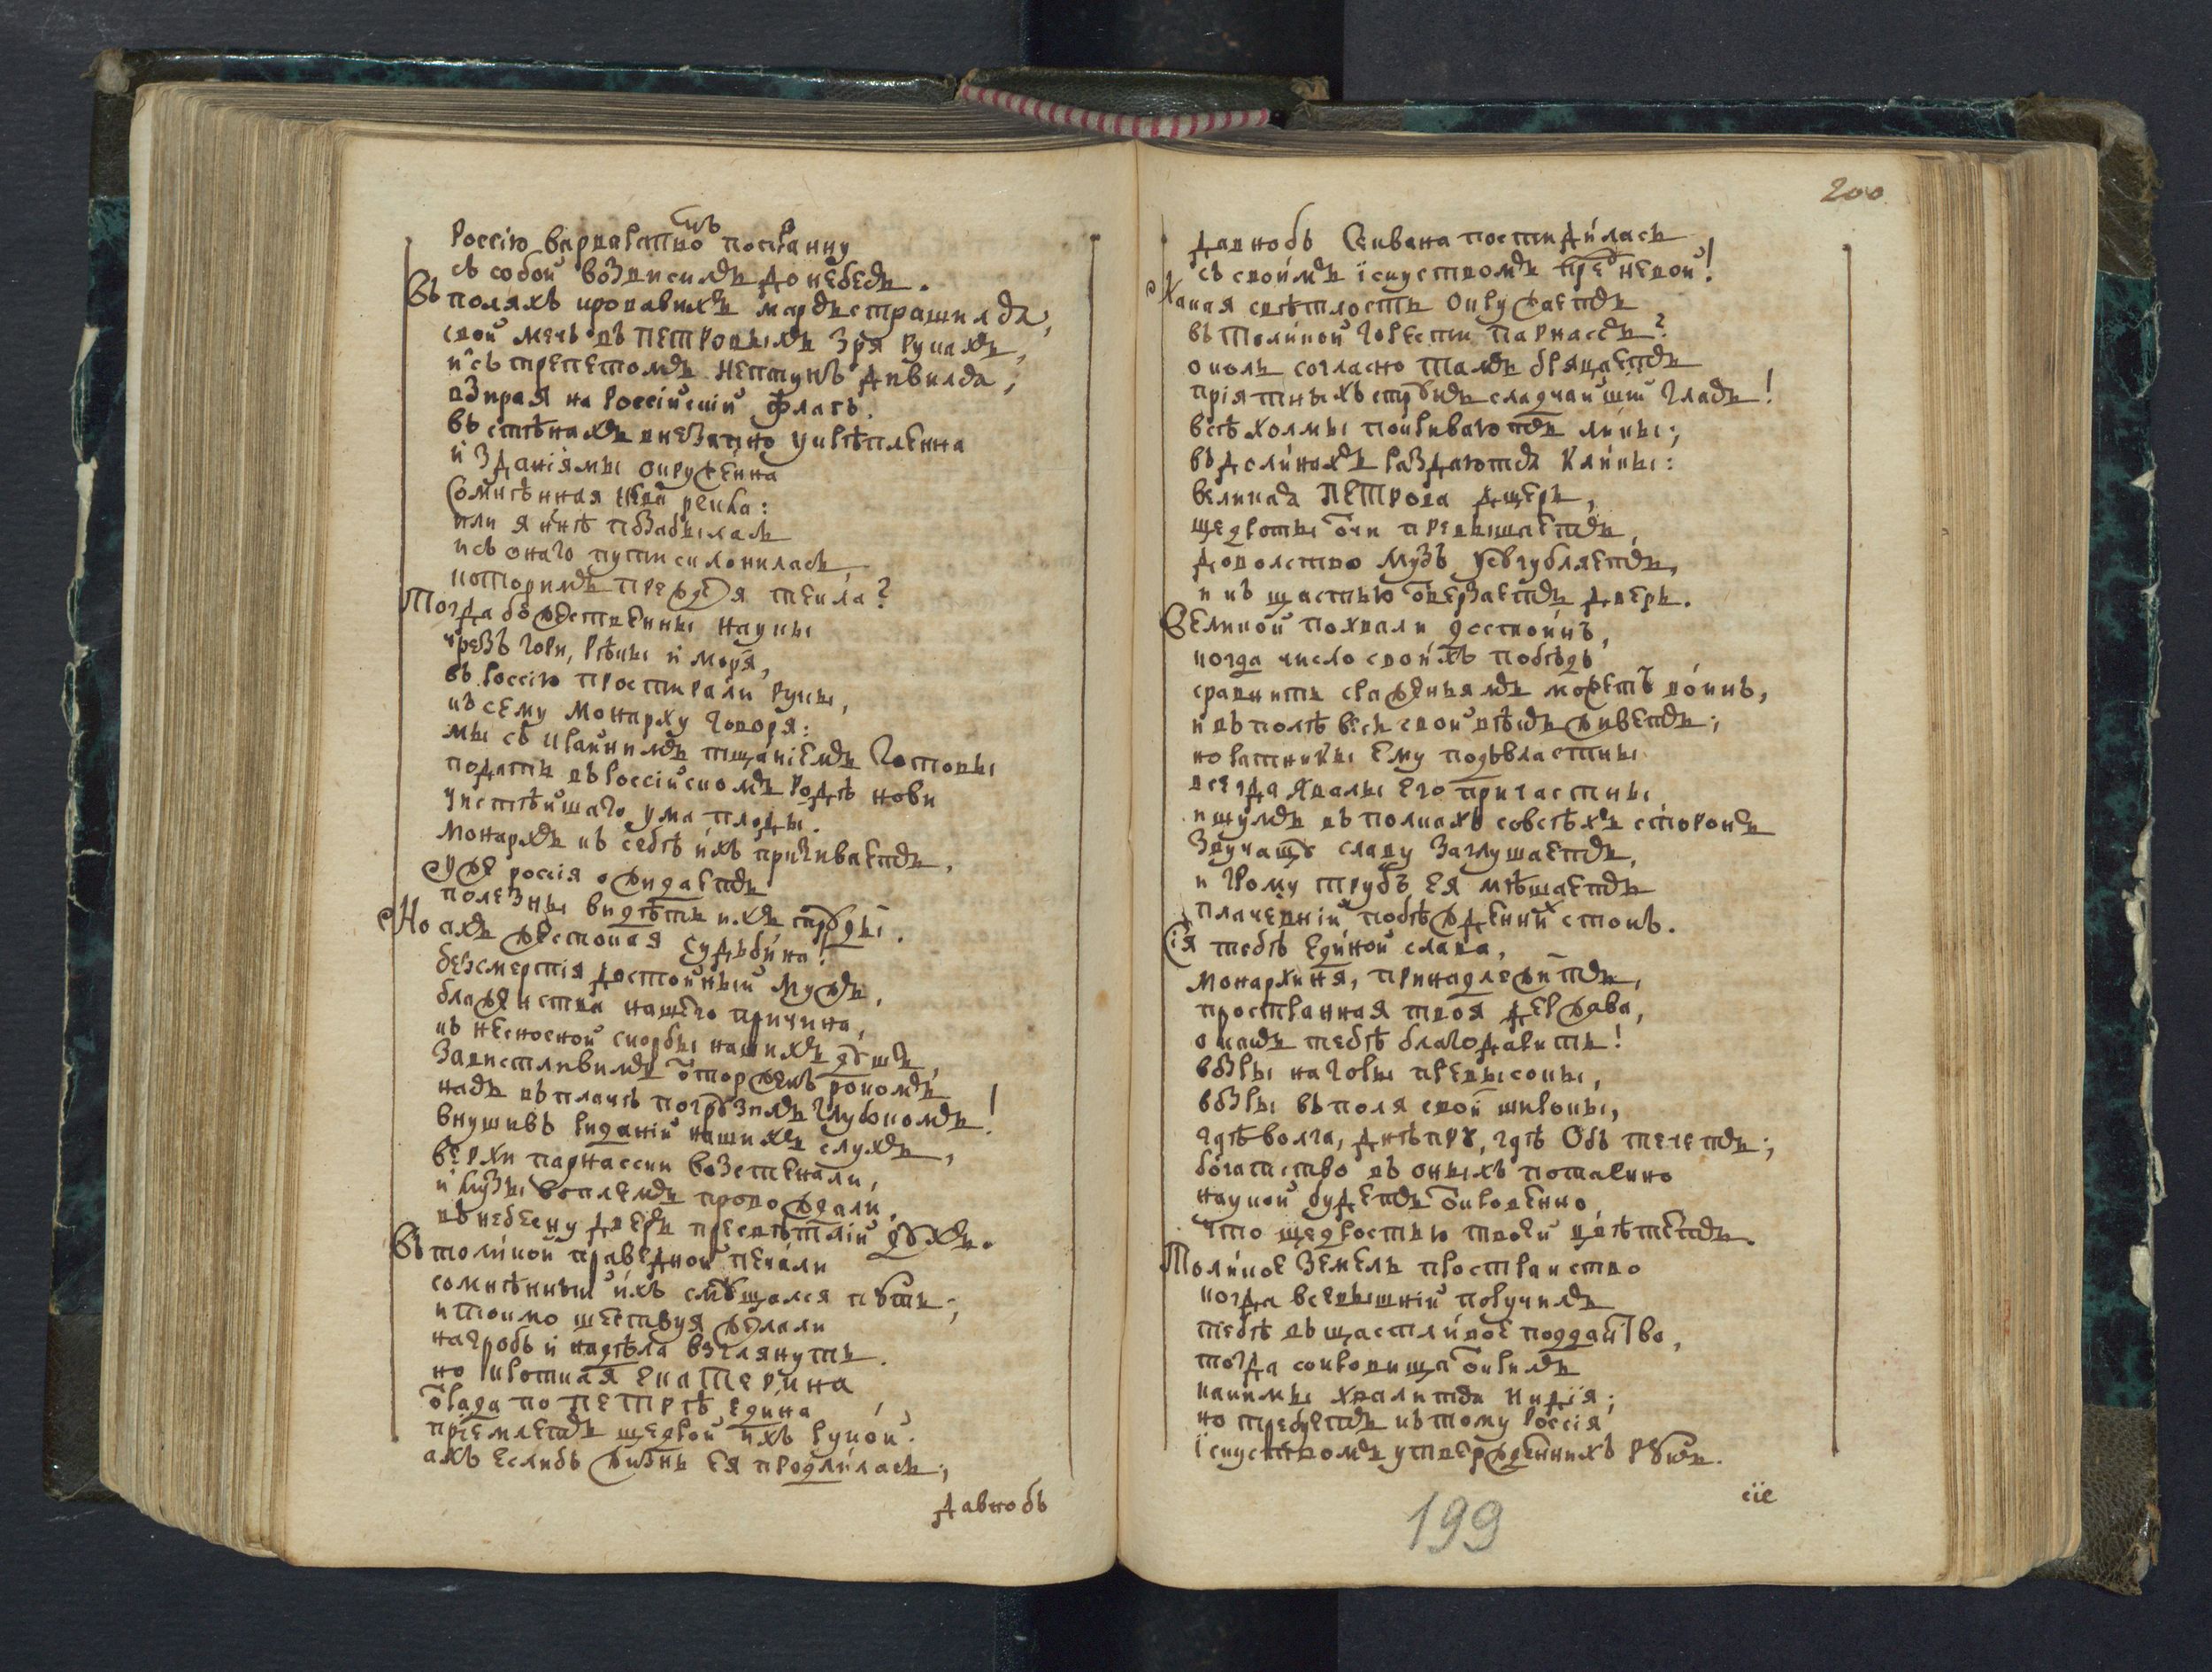 Россію варварствомъ попранну
съ собой возвисилъ до небесъ.
Въ поляхъ кровавихъ марсъ страшился,
свой мечъ въ ПЕТРовыхъ зря рукахъ,
и съ трепетомъ нептунъ дивился,
взирая на Россійскій флагъ.
въ стѣнахъ внезапно укрѣпленна
и зданіямы окруженна
Сомнѣнная Нева рекла:
или я ннѣ позабылась
и съ онаго пути склонилась,
которимъ прежде я текла?
Тогда божественны науки
чрезъ гори, рѣки и моря,
въ Россію простирали руки,
къ сему монарху говоря:
мы съ крайнимъ тщаніемъ готовы
подать въ Россійскомъ родѣ нови
чистѣйшаго ума плоды.
монархъ къ себѣ ихъ призиваетъ,
уже россія ожидаетъ
полезны видѣть ихъ труды.
Но ахъ жестокая судьбина!
безсмертія достойный мужъ,
блаженства нашего причина,
къ несносной скорбы нашихъ душъ,
завистливимъ отторженъ рокомъ
насъ въ плачѣ погрузилъ глубокомъ!
внушивъ риданій нашихъ слухъ,
верхи парнасски возстенали,
и Музы воплемъ провождали
въ небесну дверь пресвѣтлій духъ.
Въ толикой праведной печали
сомнѣнный ихъ смущался путь;
и токмо шествуя желали
на гробъ и на дѣла взглянуть.
но кроткая ЕкаТеРина
отрада по ПЕТРѢ едина
пріемлетъ щедрой ихъ рукой.
ахъ еслибъ жизнь ея продлилась,
давнобъ
200
давнобъ Секвана постидилась
съ своимъ іскуствомъ пред невой!
Какая свѣтлость окружаетъ
въ толикой горести парнассъ?
о коль согласно тамъ бряцаетъ
пріятныхъ струнъ сладчайшій гласъ!
всѣ холмы покриваютъ лики;
въ долинахъ раздаются клики:
великая ПЕТРова дщерь,
щедроты отчи превышаетъ,
доволство музъ усугубляетъ,
и къ щастью отверзаетъ дверь.
Великой похвали достоинъ,
когда число своихъ побѣдъ
сравнить сраженьямъ можетъ воинъ,
и въ полѣ весь свой вѣкъ живетъ;
но ратники ему подвластны
всегда хвалы его причастны,
и шумъ въ полкахъ со всѣхъ сторонъ
звучащу славу заглушаетъ,
и грому трубъ ея мѣшаетъ
плачевній побѣжденних стонъ.
Сія тебѣ единой слава,
монархиня, принадлежитъ,
пространная твоя держава,
о какъ тебѣ благодарить!
возри на горы превысоки,
возри въ поля свой широки,
гдѣ волга, днѣпръ, гдѣ Объ течетъ;
богатство въ оныхъ потаенно
наукой будетъ откровенно,
что щедростью твоей цвѣтетъ.
Толикое земель пространство
когда всевышній поручилъ
тебѣ въ щастливое подданство,
тогда сокровища открилъ
какимы хвалится Индія;
но требуетъ къ тому Россія
іскуствомъ утвержденнихъ рукъ.
сіе
199